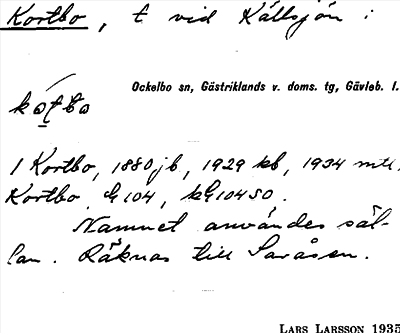 Kortbo, t vid Källsjön i
Ockelbo sn, Gästriklands v. doms. tg, Gävleb. l.
I Kortbo, 1880 jb, 1929 kb, 1934 mtl.
Kortbo G 104, kG 104 SO.
Namnet användes säl-
lan. Räknas till Saråsen.
LARS LARSSON 1935